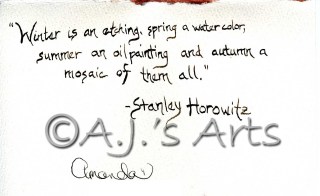 "Winter is an etching, spring a watercolor,
summer an oil painting and autumn a
mosaic of them all."
-Stanley Horowitz
©A.J.'s Arts
Amanda